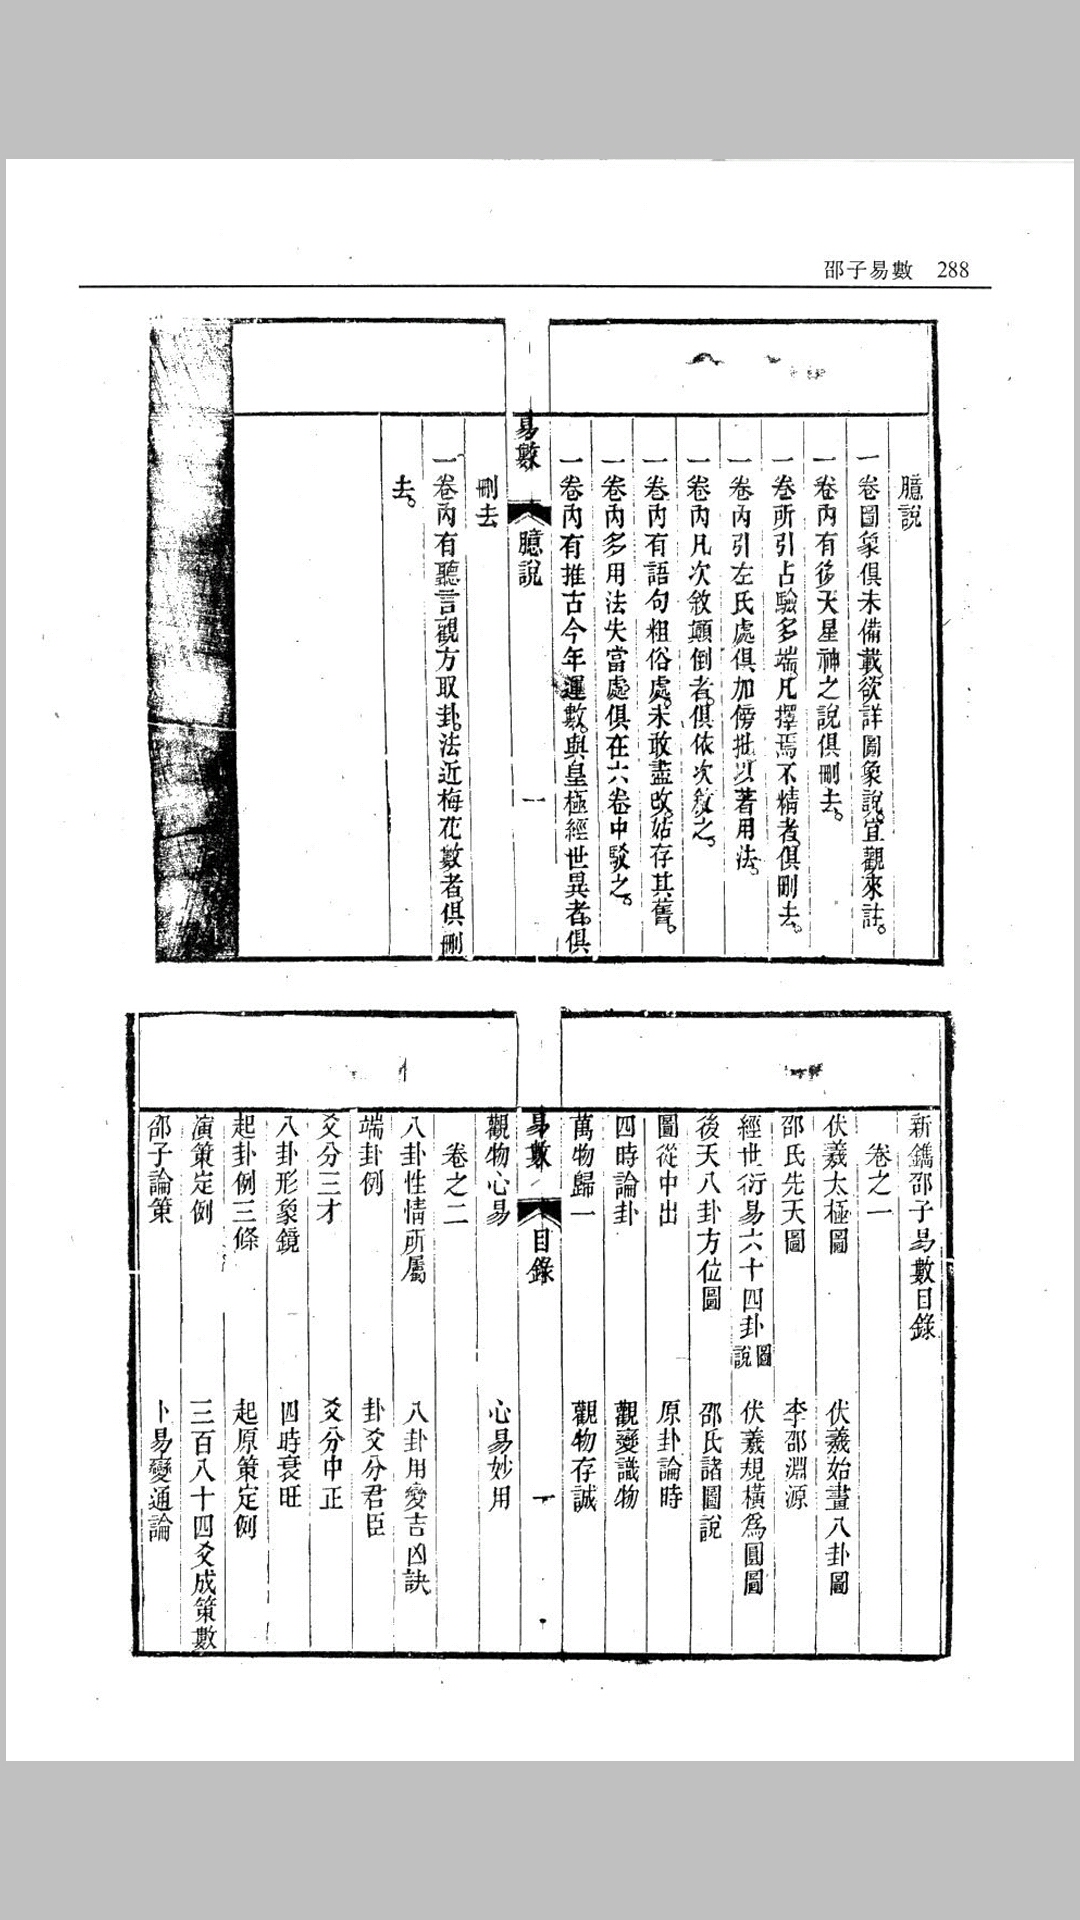 邵子易數 288
臆說
一卷圖象俱未備載欲詳圖象說宜觀來註。
一卷內有後天星神之說俱刪去。
一卷所引占驗多端凡擇焉不精者俱刪去。
一卷內引左氏處俱加傍批以著用法。
一卷內凡次敘顛倒者俱依次敘之。
一卷內有語句粗俗處未敢盡改姑存其舊。
一卷內多用法失當處俱在六卷中駁之。
一卷內有推古今年運數與皇極經世異者俱
易數 臆說 一
刪去
一卷內有聽言觀方取卦法近梅花數者俱刪
去。
新鐫邵子易數目錄
卷之一
伏羲太極圖 伏羲始畫八卦圖
邵氏先天圖 李邵淵源
經世衍易六十四卦圖說 伏羲規橫為圓圖
後天八卦方位圖 邵氏諸圖說
圖從中出 原卦論時
四時論卦 觀變識物
萬物歸一 觀物存誠
易數 目錄 一
觀物心易 心易妙用
卷之二
八卦性情所屬 八卦用變吉凶訣
端卦例 卦爻分君臣
爻分三才 爻分中正
八卦形象鏡 四時衰旺
起卦例三條 起原策定例
演策定例 三百八十四爻成策數
邵子論策 卜易變通論